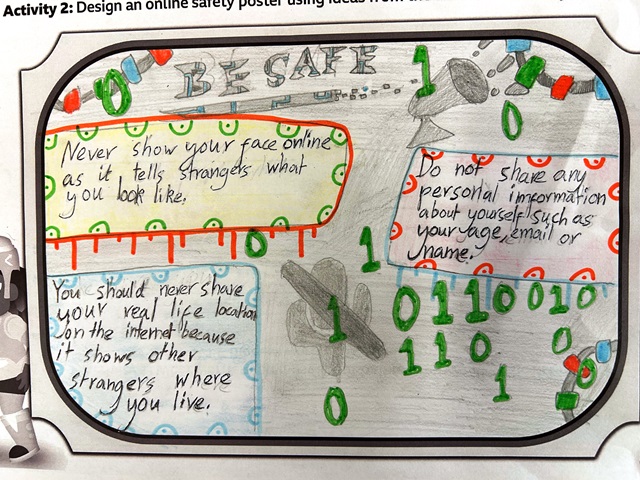 Activity 2: Design an online safety poster using ideas from the
BE SAFE
Never show your face online
as it tells strangers what
you look like.
Do not share any
personal imformation
about yourself such as
your age, email or
name.
You should never share
your real life location
on the internet because
it shows other
strangers where
you live.
0
1
0
0
1
1
0110010
110
0
1
0
0